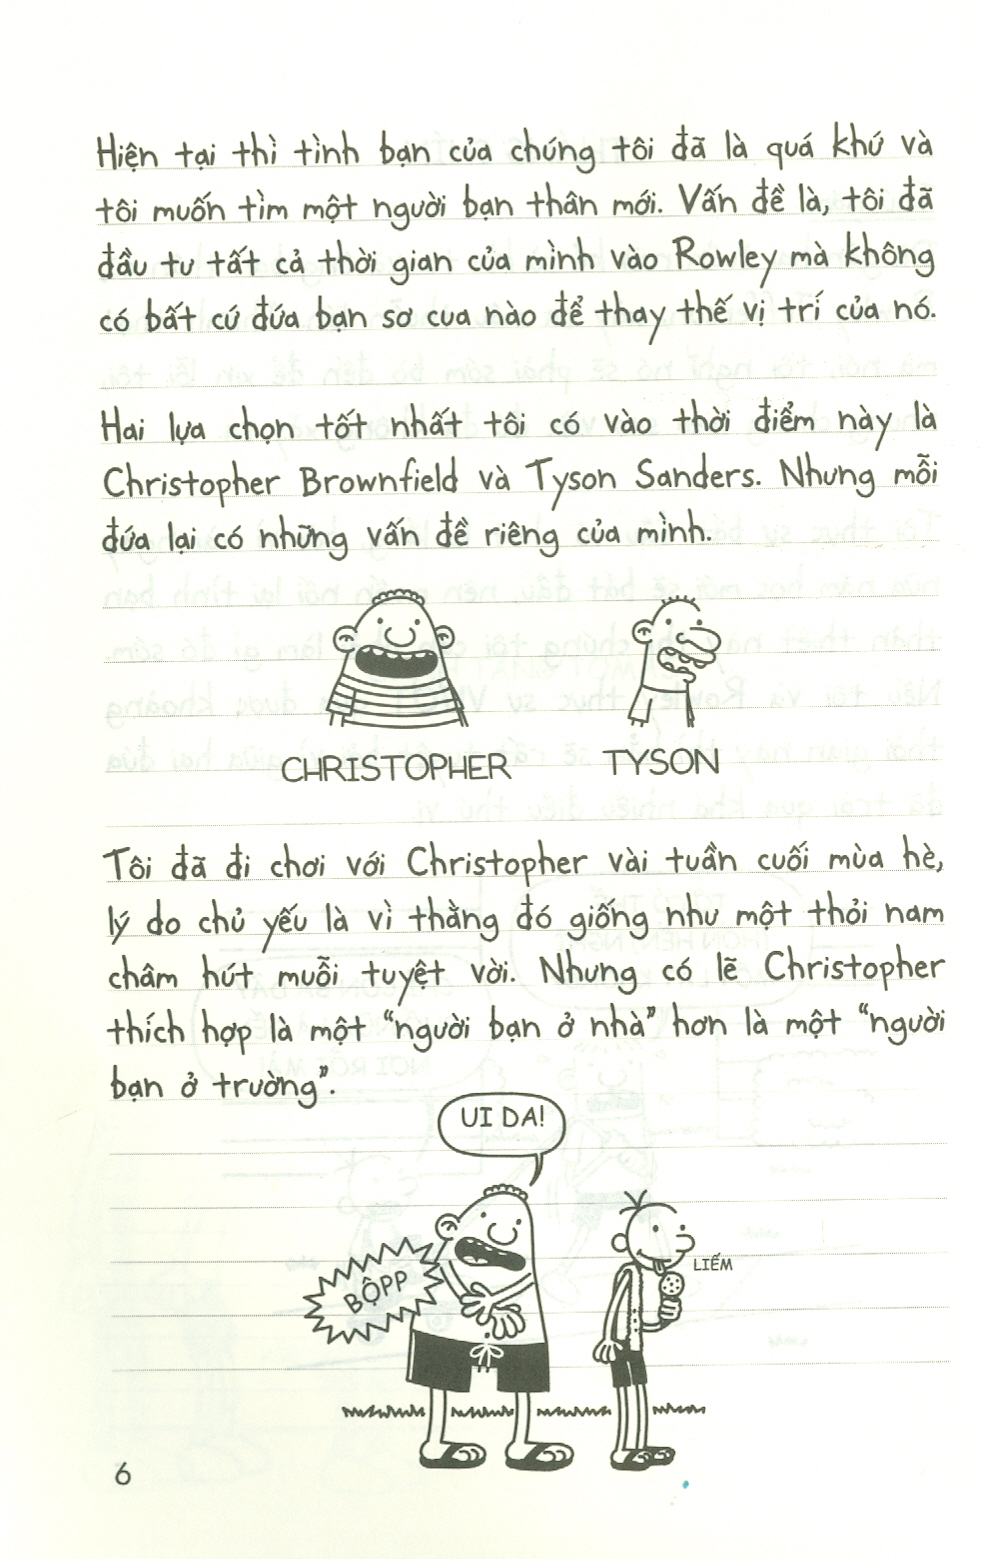 Hiện tại thì tình bạn của chúng tôi đã là quá khứ và
tôi muốn tìm một người bạn thân mới. Vấn đề là, tôi đã
đầu tư tất cả thời gian của mình vào Rowley mà không
có bất cứ đứa bạn sơ cua nào để thay thế vị trí của nó.
Hai lựa chọn tốt nhất tôi có vào thời điểm này là
Christopher Brownfield và Tyson Sanders. Nhưng mỗi
đứa lại có những vấn đề riêng của mình.
CHRISTOPHER
TYSON
Tôi đã đi chơi với Christopher vài tuần cuối mùa hè,
lý do chủ yếu là vì thằng đó giống như một thỏi nam
châm hút muỗi tuyệt vời. Nhưng có lẽ Christopher
thích hợp là một “người bạn ở nhà” hơn là một “người
bạn ở trường”.
UI DA!
BỘPP
LIẾM
6